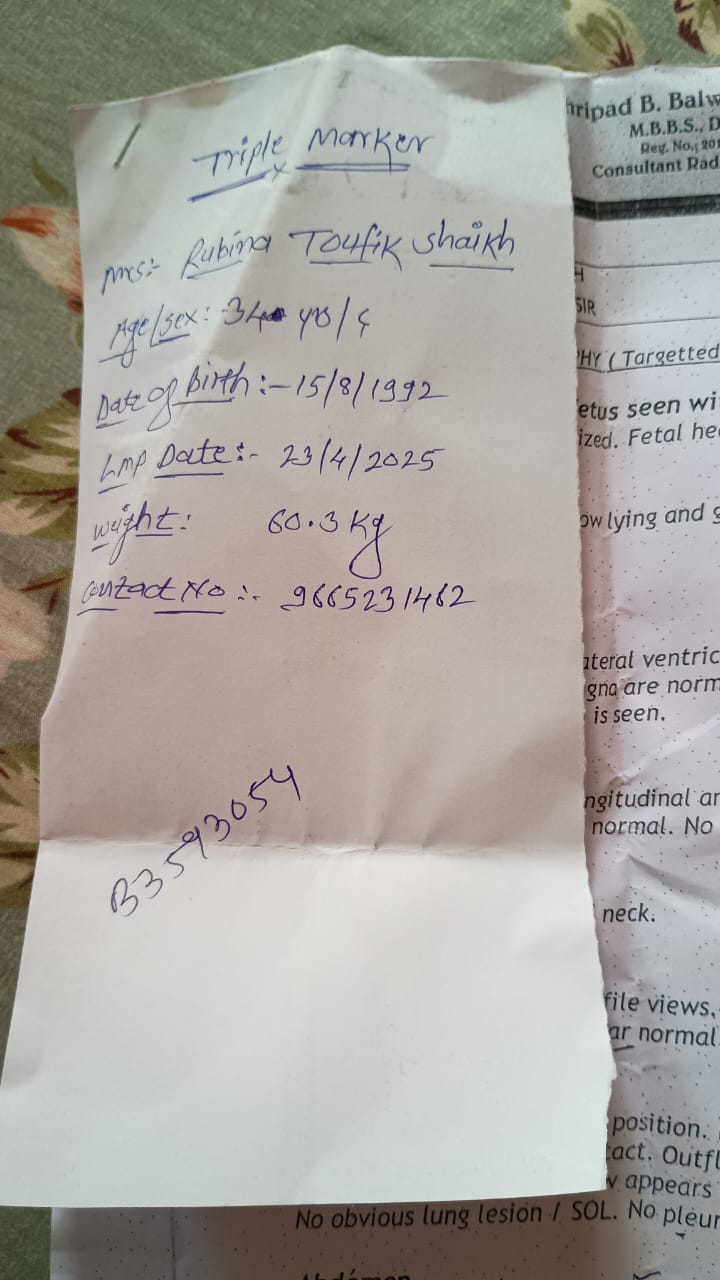 Triple Marker
Mrs:- Rubina Toufik Shaikh
Age/sex: 34 yrs/F
Date of Birth :- 15/8/1992
LMP Date :- 23/4/2025
weight: 60.3 Kg
Contact No :- 9665231462
B3593054
hripad B. Balw
M.B.B.S., D
Reg. No.: 201
Consultant Rad
H
SIR
PHY ( Targetted
etus seen wi
ized. Fetal hea
ow lying and g
ateral ventric
gna are norm
is seen.
ngitudinal an
normal. No
neck.
file views.
ar normal
position.
tact. Outfl
w appears
No obvious lung lesion / SOL. No pleur
Abdomen